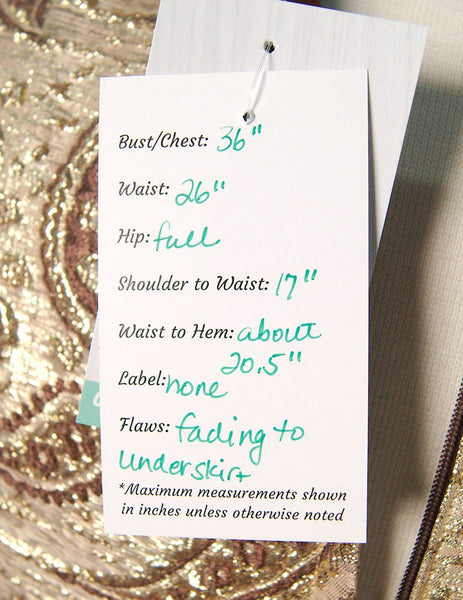 Bust/Chest: 36"
Waist: 26"
Hip: full
Shoulder to Waist: 17"
Waist to Hem: about
20.5"
Label: none
Flaws: fading to
underskirt
*Maximum measurements shown
in inches unless otherwise noted